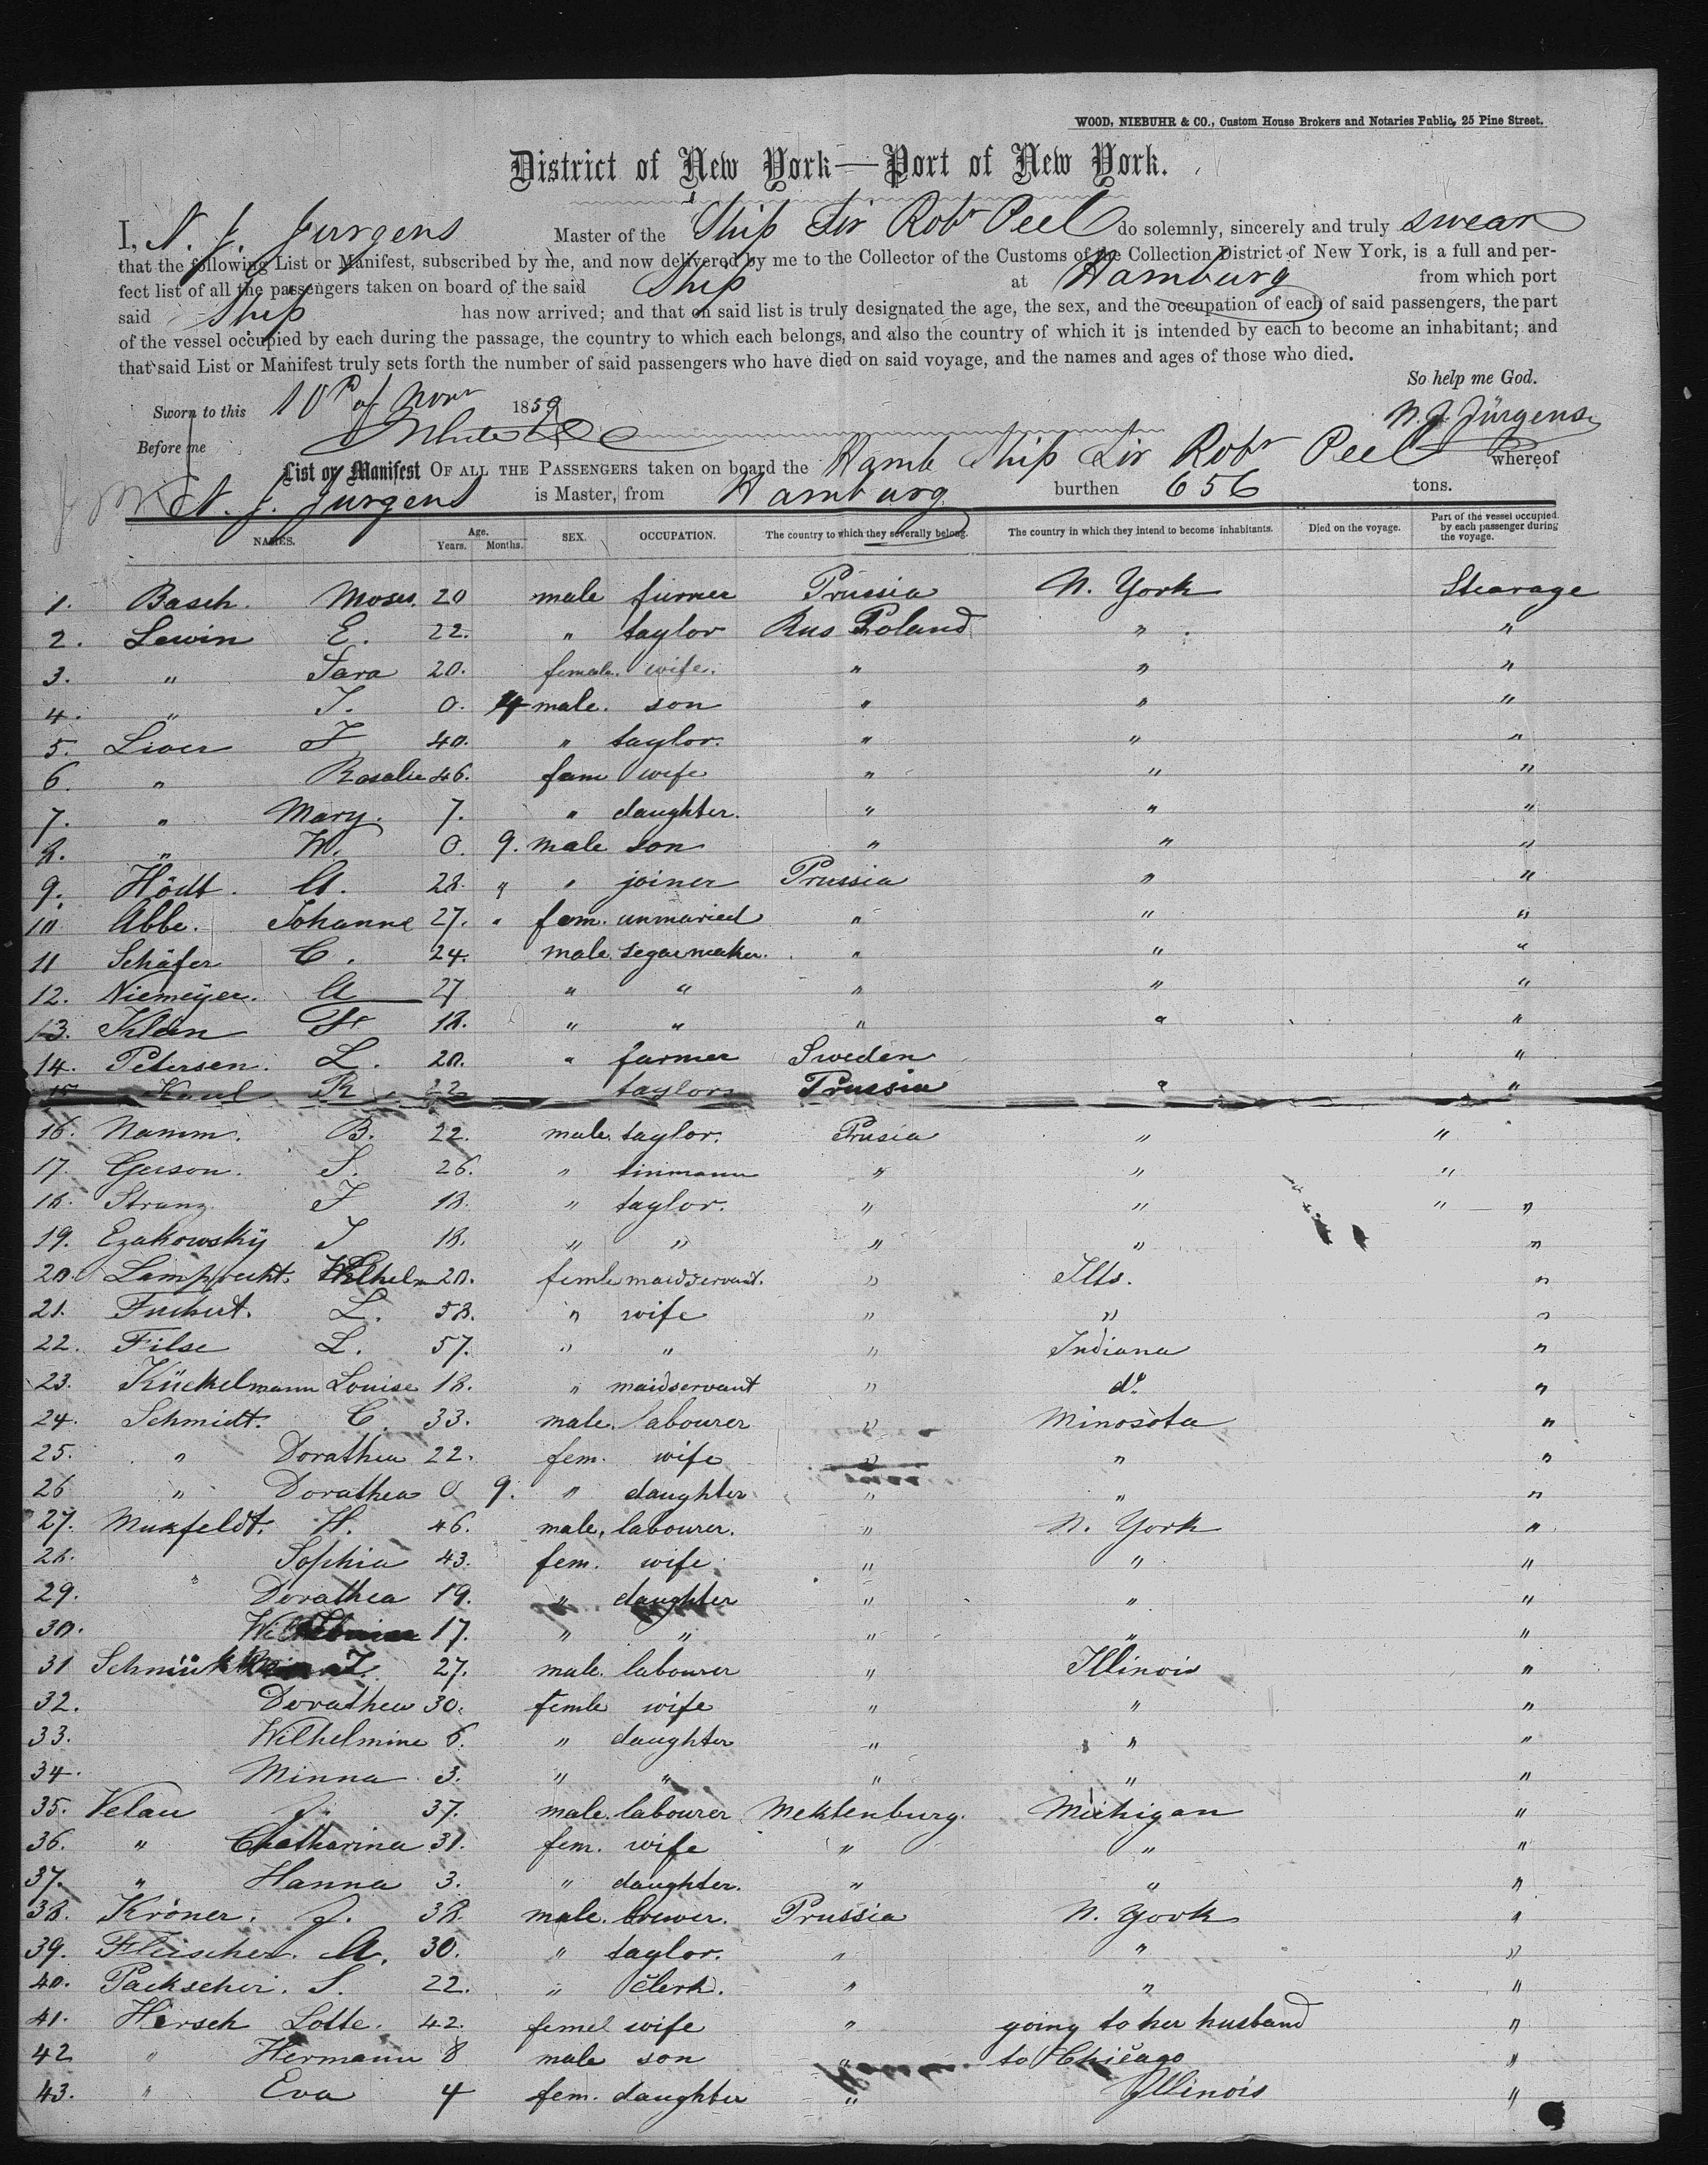 WOOD, NIEBUHR & CO., Custom House Brokers and Notaries Public, 25 Pine Street.
District of New York—Port of New York.
I, N. J. Jurgens Master of the Ship Sir Robt Peel do solemnly, sincerely and truly swear
that the following List or Manifest, subscribed by me, and now delivered by me to the Collector of the Customs of the Collection District of New York, is a full and per-
fect list of all the passengers taken on board of the said Ship at Hamburg from which port
said Ship has now arrived; and that on said list is truly designated the age, the sex, and the occupation of each of said passengers, the part
of the vessel occupied by each during the passage, the country to which each belongs, and also the country of which it is intended by each to become an inhabitant; and
that said List or Manifest truly sets forth the number of said passengers who have died on said voyage, and the names and ages of those who died.
So help me God.
Sworn to this 10th of Novr 1859
N. J. Jürgens
Before me
List or Manifest OF ALL THE PASSENGERS taken on board the Hamb Ship Sir Robt Peel whereof
N. J. Jurgens is Master, from Hamburg burthen 656 tons.
NAMES. Age. Years. Months. SEX. OCCUPATION. The country to which they severally belong. The country in which they intend to become inhabitants. Died on the voyage. Part of the vessel occupied by each passenger during the voyage.
1. Basch. Moses. 20 male furrier Prussia N. York Stearage
2. Lewin E. 22. " taylor Rus Poland " "
3. " Sara 20. female. wife. " " "
4. " T. 0. 4 male. son " " "
5. Liver F 40. " taylor. " " "
6. " Rosalie 46. fam wife " " "
7. " Mary. 7. " daughter. " " "
8. " W. 0. 9. male son " " "
9. Hödt. A. 28. " " joiner Prussia " "
10 Abbe. Johanne 27. " fem. unmaried " " "
11 Schäfer C. 24. male. segarmaker. " " "
12. Niemeyer. A 27 " " " " "
13. Klein Fr 18. " " " " "
14. Petersen. L. 20. " farmer Sweden "
15 Kaul R. 22 taylor Prussia " "
16. Namm. B. 22. male. taylor. Prusia " "
17. Gerson. S. 26. " tinmann " " "
18. Stranz F 18. " taylor. " " " "
19. Ezakowsky I 18. " " " " "
20. Lamprecht. Wilhelm 20. femle maidservant. " Ills. "
21. Fuckert. L. 58. " wife " " "
22. Filse L. 57. " " " Indiana "
23. Kückelmann Louise 18. " maidservant " do. "
24. Schmidt. C. 33. male. labourer " Minosota "
25. " Dorathea 22. fem. wife " " "
26 " Dorathea 0 9. " daughter " " "
27. Muxfeldt. H. 46. male, labourer. " N. York "
28. Sophia 43. fem. wife " " "
29. " Dorathea 19. " daughter " " "
30. 17. " " " " "
31 27. male. labourer " Illinois "
32. Dorathea 30. femle wife " " "
33. Wilhelmine 6. " daughter " " "
34. Minna 3. " " " " "
35. Velau J. 37. male. labourer Meklenburg. Michigan "
36. " Chatharina 31. fem. wife " " "
37. " Hanna 3. " daughter. " " "
38. Kröner. J. 38. male. brewer. Prussia N. York "
39. Fleischer. A. 30. " taylor. " " "
40. Packscher. S. 22. " Clerk. " " "
41. Hersch Lotte. 42. femel wife " going to her husband "
42 " Hermann 8 male son " to Chicago "
43. " Eva 4 fem. daughter " Illinois "